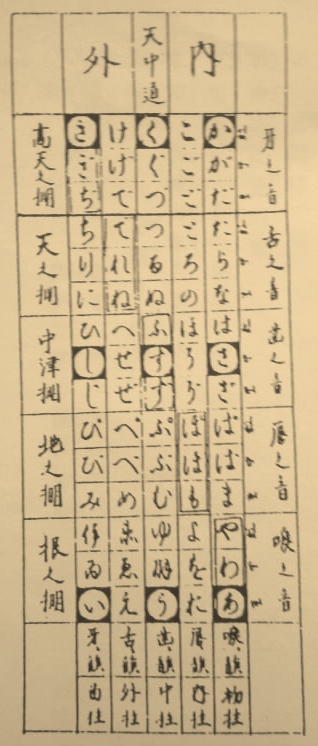 牙之音 舌之音 歯之音 唇之音 喉之音
内
天中道
外
か が だ た ら な は さ ざ ぱ ば ま や わ あ 喉韻
こ ご ど と ろ の ほ そ ぞ ぽ ぼ も よ を お 唇韻
く ぐ づ つ る ぬ ふ す ず ぷ ぶ む ゆ う 歯韻中柱
け げ で て れ ね へ せ ぜ ぺ べ め ゑ え 舌韻外柱
き ぎ ぢ ち り に ひ し じ ぴ び み ゐ い 牙韻
高天之棚 天之棚 中津棚 地之棚 根之棚